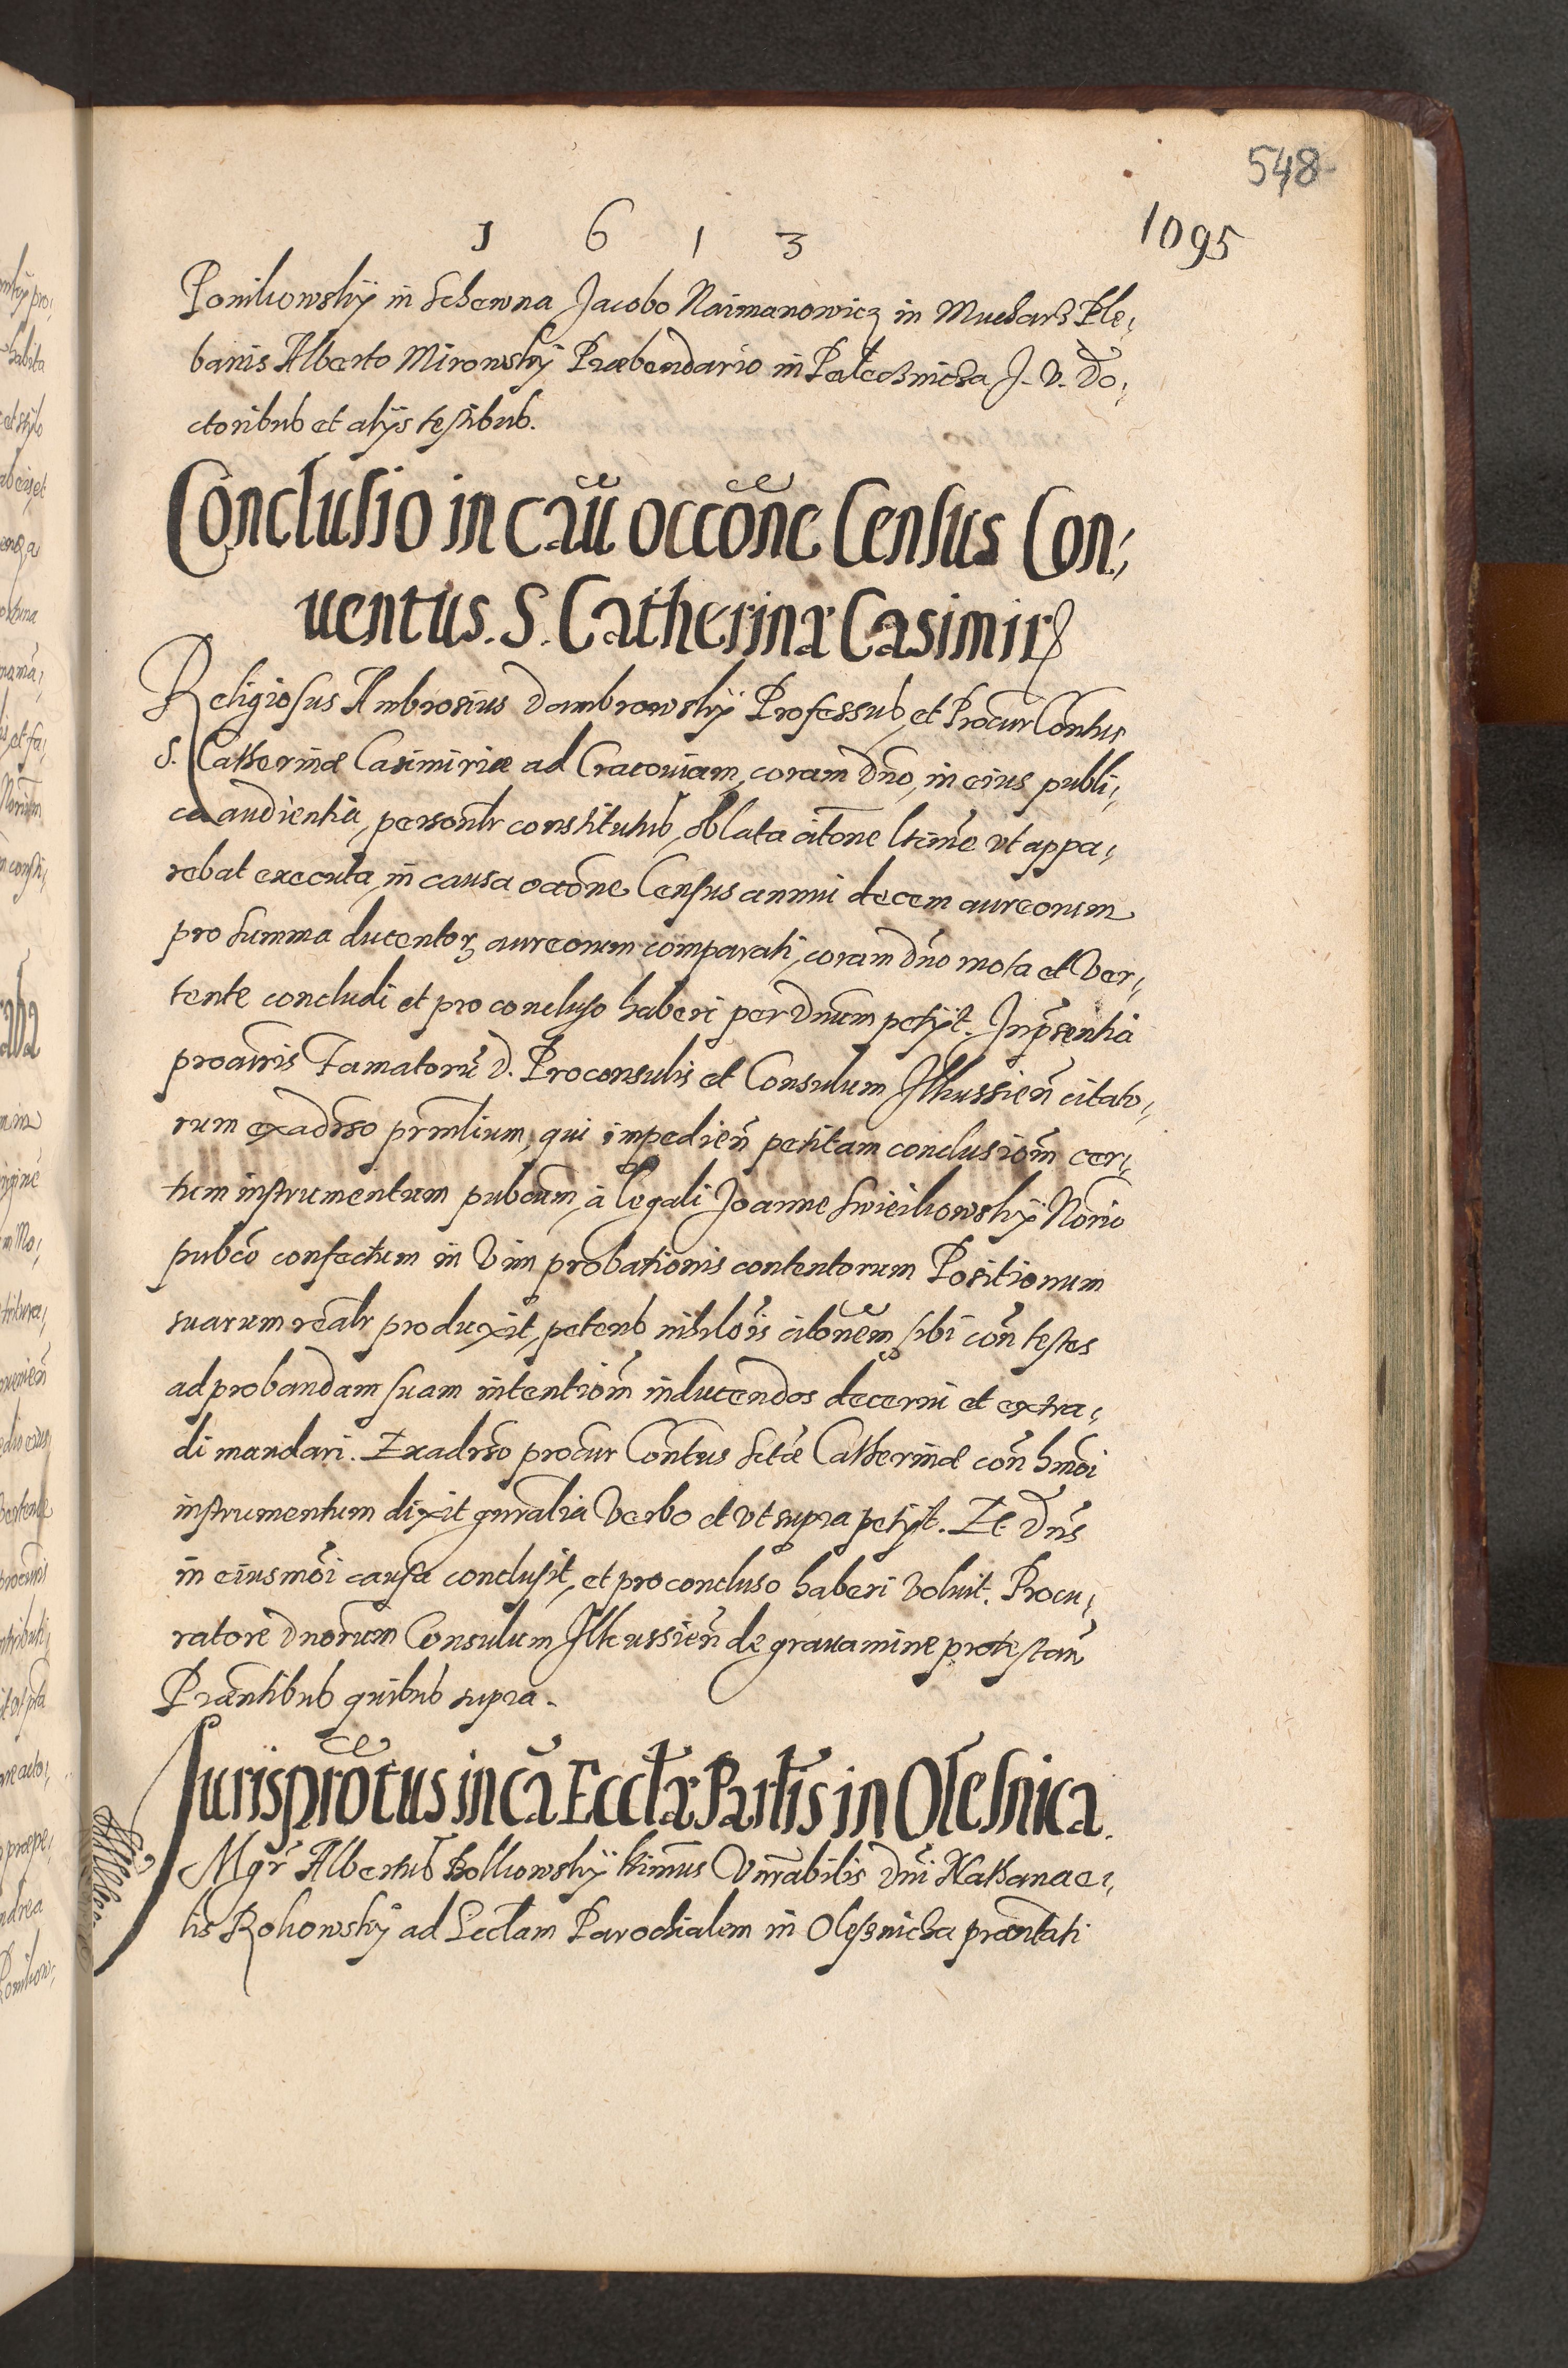 548
1 6 1 3
1095
Ponikowskÿ in Schewna Jacobo Naimanowicz in Mucharz Ple,
banis Alberto Mirowskÿ Præbendario in Palecznicza J. V. Do,
ctoribus et alÿs testibus.
Conclusio in cau͂ occo͂ne Census Con,
uentus. S. Catherinæ Casimirꝭ
Religiosus Ambrosius Dambrowskÿ Professus, et Procur Con͂tus
S. Catherinæ Casimiriæ ad Cracouiam, coram Dn͂o, in eius publi,
ca audientia, person͂lr constitutus, oblata cito͂ne ltime͂ vt appa,
rebat executa, in causa occo͂ne Census annui decem aureorum
pro summa ducentorꝫ aureorum comparati, coram Dn͂o mota et Ver,
tente concludi et pro concluso haberi per Dnu͂m petÿt. In pr͂sentia
procuris Famatoru͂ D. Proconsulis et Consulum Ilkussien͂ citato,
rum exadr͂so prn͂tium, qui impedien͂ petitam conclusio͂m cer,
tum instrumentum pubcu͂m, à legali Joanne Swieikowskÿ No͂rio
pubco͂ confectum in Vim probationis contentorum Positionum
suarum realr produxit, petens nihilo͂is cito͂nem sibi con͂ testes
ad probandam suam intentio͂m inducendos decerni et extra,
di mandari. Exadr͂so procur Con͂tus Sctæ͂ Catherinæ con͂ hmo͂i
instrumentum dixit gnr͂alia Verbo et vt supra petÿt. Et Dn͂s
in eiusmo͂i causa conclusit, et pro concluso haberi voluit. Procu,
ratore Dno͂rum Consulum Ilkussien͂ de grauamine protestan͂
Præn͂tibus quibus supra.
Jurispro͂tus in ca͂ Eccl͂æ Parl͂is in Olesnica.
Mgr͂ Albertus Bolkowskÿ ltimus Vnr͂abilis Dn͂i Nathanae,
lis Rokowskÿ ad Eccl͂am Parochialem in Olesznicza præn͂tati